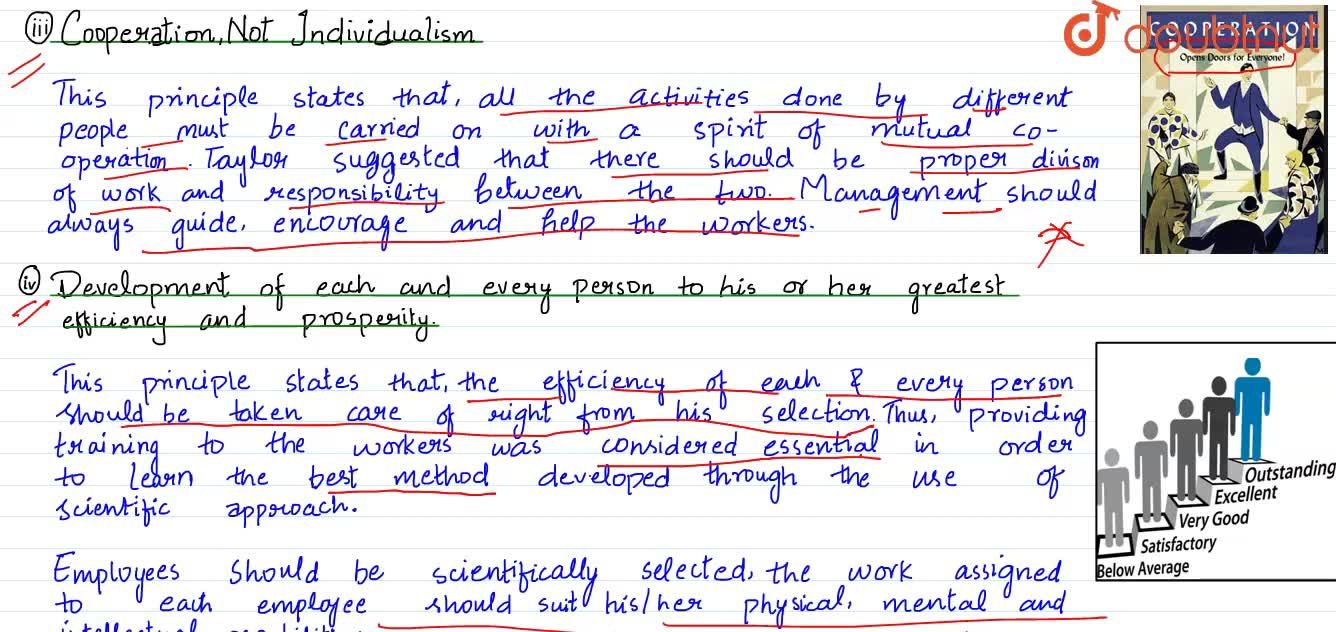 (iii) Cooperation, Not Individualism
This principle states that, all the activities done by different
people must be carried on with a spirit of mutual co-
operation. Taylor suggested that there should be proper divison
of work and responsibility between the two. Management should
always guide, encourage and help the workers.
COOPERATION
doubtnut
Opens Doors for Everyone!
(iv) Development of each and every person to his or her greatest
efficiency and prosperity.
This principle states that, the efficiency of each & every person
should be taken care of right from his selection. Thus, providing
training to the workers was considered essential in order
to learn the best method developed through the use of
scientific approach.
Outstanding
Excellent
Very Good
Satisfactory
Below Average
Employees should be scientifically selected, the work assigned
to each employee should suit his/her physical, mental and
intellectual